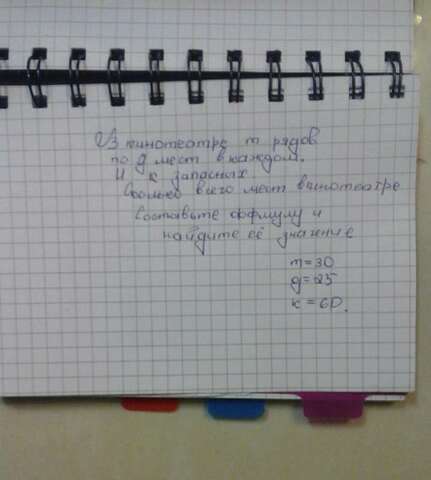 В кинотеатре m рядов
по д мест в каждом.
И к запасных.
Сколько всего мест в кинотеатре
Составьте формулу и
найдите её значение
m=30
д=25
к=60.